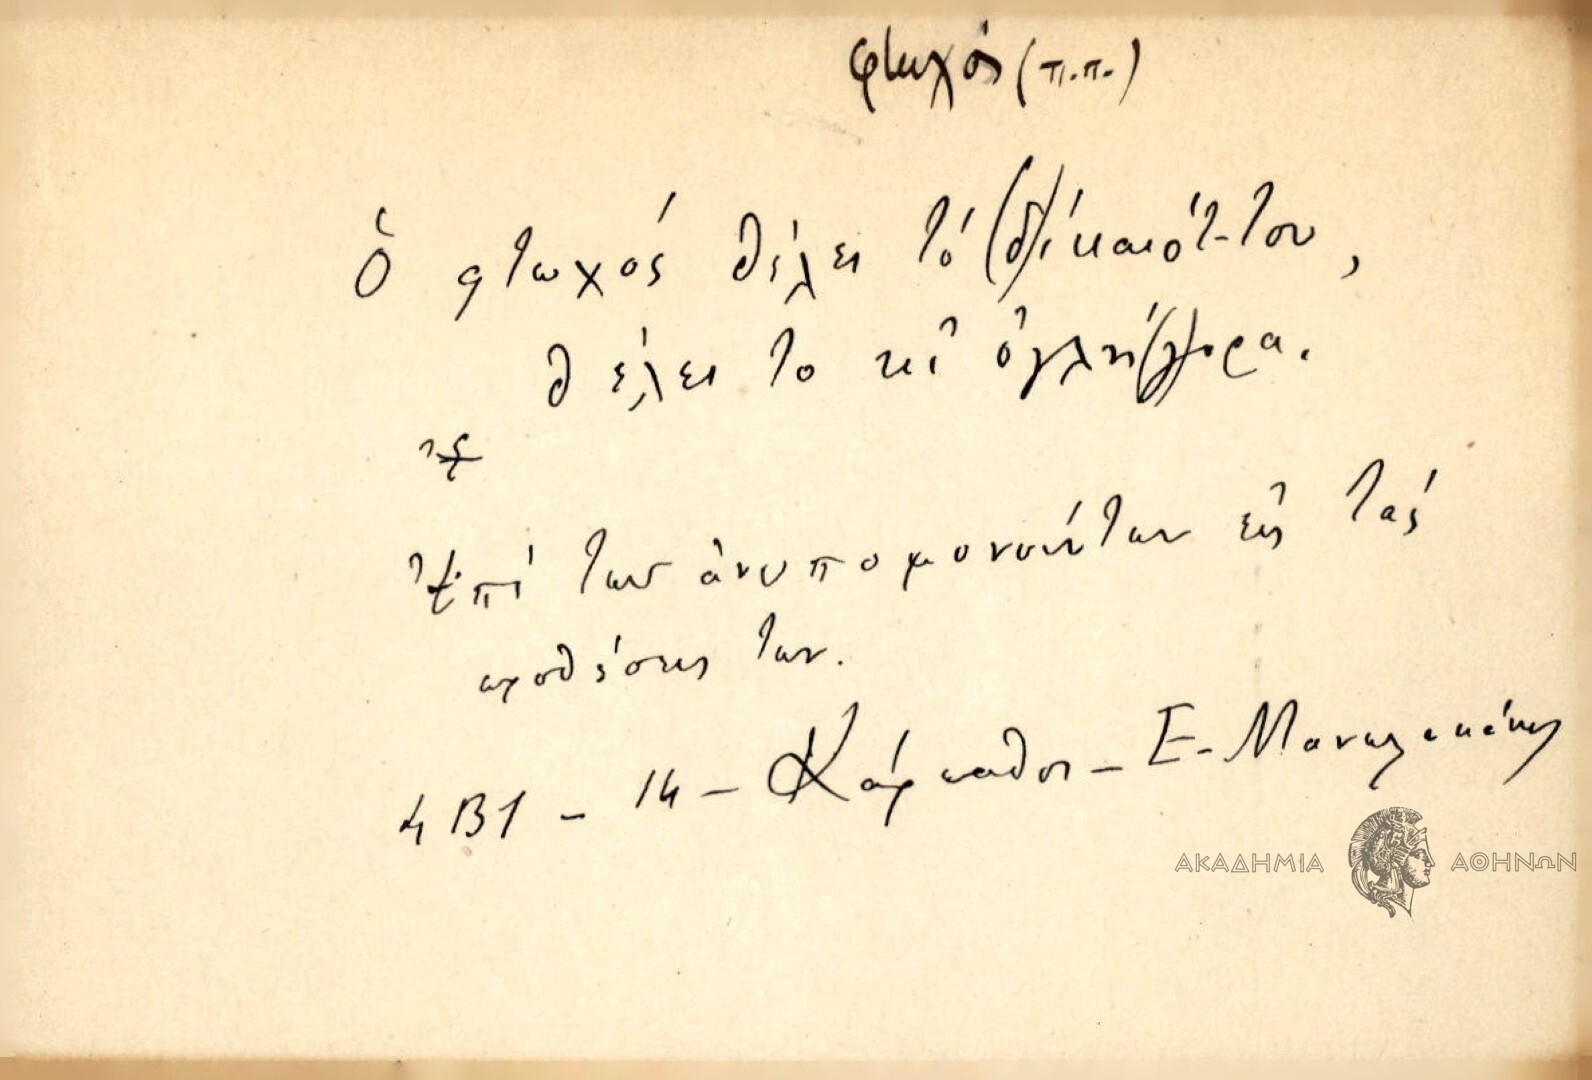 φτωχός (π.π.)
Ὁ φτωχός θέλει τό (δ)ίκαιότ-του,
θέλει το κἰ ὀγλή(γ)ορα.
Ἐπί των ἀνυπομονούντων εἰς τάς
προθέσεις των.
4 Β1 - 14 - Κάρπαθος - Ε. Μανωλακάκης
ΑΚΑΔΗΜΙΑ ΑΘΗΝΩΝ